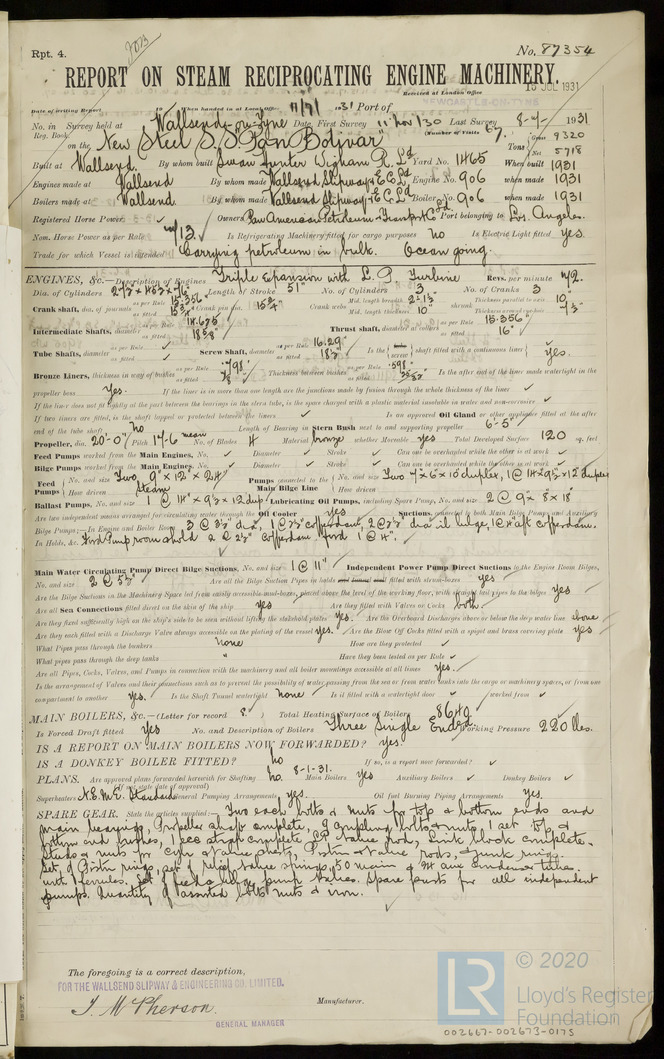 Rpt. 4.
No. 87354
REPORT ON STEAM RECIPROCATING ENGINE MACHINERY.
Received at London Office 15 JUL 1931
NEWCASTLE-ON-TYNE
Date of writing Report 19 When handed in at Local Office 11/7/1931 Port of
No. in Survey held at Wallsend-on-Tyne Date, First Survey 11 Nov/30 Last Survey 8-7- 1931
Reg. Book. (Number of Visits 67)
on the New Steel S.S. "San Bolivar" Tons Gross 9320 Net 5718
Built at Wallsend By whom built Swan Hunter Wigham R. Ld Yard No. 1465 When built 1931
Engines made at Wallsend By whom made Wallsend Slipway & E.C. Ld Engine No. 906 when made 1931
Boilers made at Wallsend By whom made Wallsend Slipway & E.C. Ld Boiler No. 906 when made 1931
Registered Horse Power Owners Pan American Petroleum Transport Co Port belonging to Los Angeles
Nom. Horse Power as per Rule Is Refrigerating Machinery fitted for cargo purposes no Is Electric Light fitted Yes.
Trade for which Vessel is intended Carrying petroleum in bulk. Ocean going.
ENGINES, &c.—Description of Engines Triple Expansion with L.P. Turbine Revs. per minute 72.
Dia. of Cylinders Length of Stroke 51" No. of Cylinders 3 No. of Cranks 3
Crank shaft, dia. of journals as per Rule 15.356" as fitted 15¾" Crank pin dia. 15¾" Crank webs Mid. length breadth Mid. length thickness 10" shrunk Thickness parallel to axis 10" Thickness around eye-hole 7½"
Intermediate Shafts, diameter as per Rule 14.625 as fitted Thrust shaft, diameter at collars as per Rule 15.356" as fitted 16"
Tube Shafts, diameter as per Rule as fitted Screw Shaft, diameter as per Rule 16.29" as fitted Is the screw shaft fitted with a continuous liner Yes.
Bronze Liners, thickness in way of bushes as per Rule .798" as fitted 7/8" Thickness between bushes as per Rule .598" as fitted Is the after end of the liner made watertight in the
propeller boss Yes. If the liner is in more than one length are the joints made by fusion through the whole length of the liner
If the liner does not fit tightly at the part between the bearings in the stern tube, is the space charged with a plastic material insoluble in water and non-corrosive
If two liners are fitted, is the shaft lapped or protected between the liners Is an approved Oil Gland or other appliance fitted at the after
end of the tube shaft no Length of Bearing in Stern Bush next to and supporting propeller 6'-5"
Propeller, dia. 20'-0" Pitch 17'-6 mean No. of Blades 4 Material bronze whether Moveable yes Total Developed Surface 120 sq. feet
Feed Pumps worked from the Main Engines, No. Diameter Stroke Can one be overhauled while the other is at work
Bilge Pumps worked from the Main Engines, No. Diameter Stroke Can one be overhauled while the other is at work
Feed Pumps No. and size Two 9" x 12" x 24" How driven Steam Pumps connected to the Main Bilge Line No. and size Two 7" x 6" x 10" duplex, 1 @ 14" x 9½" x 12" duplex How driven
Ballast Pumps, No. and size 1 @ 14" x 9½ x 12 dup. Lubricating Oil Pumps, including Spare Pump, No. and size 2 @ 9" x 8" x 18"
Are two independent means arranged for circulating water through the Oil Cooler yes Suctions, connected to both Main Bilge Pumps and Auxiliary
Bilge Pumps:—In Engine and Boiler Room 3 @ 3½" dia, 1 @ 2½" cofferdam, 2 @ 2½" dia oil bilge, 1 @ 4" aft cofferdam.
In Holds, &c. Ford Pump room & hold 2 @ 2½" Cofferdam ford 1 @ 4".
Main Water Circulating Pump Direct Bilge Suctions, No. and size 1 @ 11" Independent Power Pump Direct Suctions to the Engine Room Bilges,
No. and size 2 @ 5½" Are all the Bilge Suction Pipes in holds fitted with strum-boxes yes
Are the Bilge Suctions in the Machinery Space led from easily accessible mud-boxes, placed above the level of the working floor, with straight tail pipes to the bilges yes
Are all Sea Connections fitted direct on the skin of the ship yes Are they fitted with Valves or Cocks both.
Are they fixed sufficiently high on the ship's side to be seen without lifting the stokehold plates yes. Are the Overboard Discharges above or below the deep water line above
Are they each fitted with a Discharge Valve always accessible on the plating of the vessel yes. Are the Blow Off Cocks fitted with a spigot and brass covering plate yes
What Pipes pass through the bunkers none How are they protected
What pipes pass through the deep tanks " Have they been tested as per Rule
Are all Pipes, Cocks, Valves, and Pumps in connection with the machinery and all boiler mountings accessible at all times yes.
Is the arrangement of Valves and their connections such as to prevent the possibility of water passing from the sea to or from water tanks into the cargo or machinery spaces, or from one
compartment to another yes. Is the Shaft Tunnel watertight none Is it fitted with a watertight door worked from
MAIN BOILERS, &c.—(Letter for record S.) Total Heating Surface of Boilers 8640
Is Forced Draft fitted Yes No. and Description of Boilers Three Single Ended Working Pressure 220 lbs.
IS A REPORT ON MAIN BOILERS NOW FORWARDED? yes.
IS A DONKEY BOILER FITTED? no If so, is a report now forwarded?
PLANS. Are approved plans forwarded herewith for Shafting no. 8-1-31. Main Boilers yes Auxiliary Boilers Donkey Boilers
(If not state date of approval)
Superheaters N.E.M.E. Standard General Pumping Arrangements yes. Oil fuel Burning Piping Arrangements Yes.
SPARE GEAR. State the articles supplied:— Two each bolts & nuts for top & bottom ends and
main bearings, Propeller shaft complete, 2 coupling bolts & nuts, 1 set top &
bottom end bushes, 1 ecc strap complete, valve rod, link block complete.
Studs & nuts for cyln & valve chests, Piston & valve rods, & junk rings.
Set of Piston rings, set of relief valve springs, 50 main & 24 aux condenser tubes
with ferrules. Set of feed & bilge pump valves. Spare parts for all independent
pumps. Quantity of assorted bolts nuts & iron.
The foregoing is a correct description,
FOR THE WALLSEND SLIPWAY & ENGINEERING CO. LIMITED.
J. McPherson. Manufacturer.
GENERAL MANAGER
LR
© 2020
Lloyd's Register
Foundation
002667-002673-0175